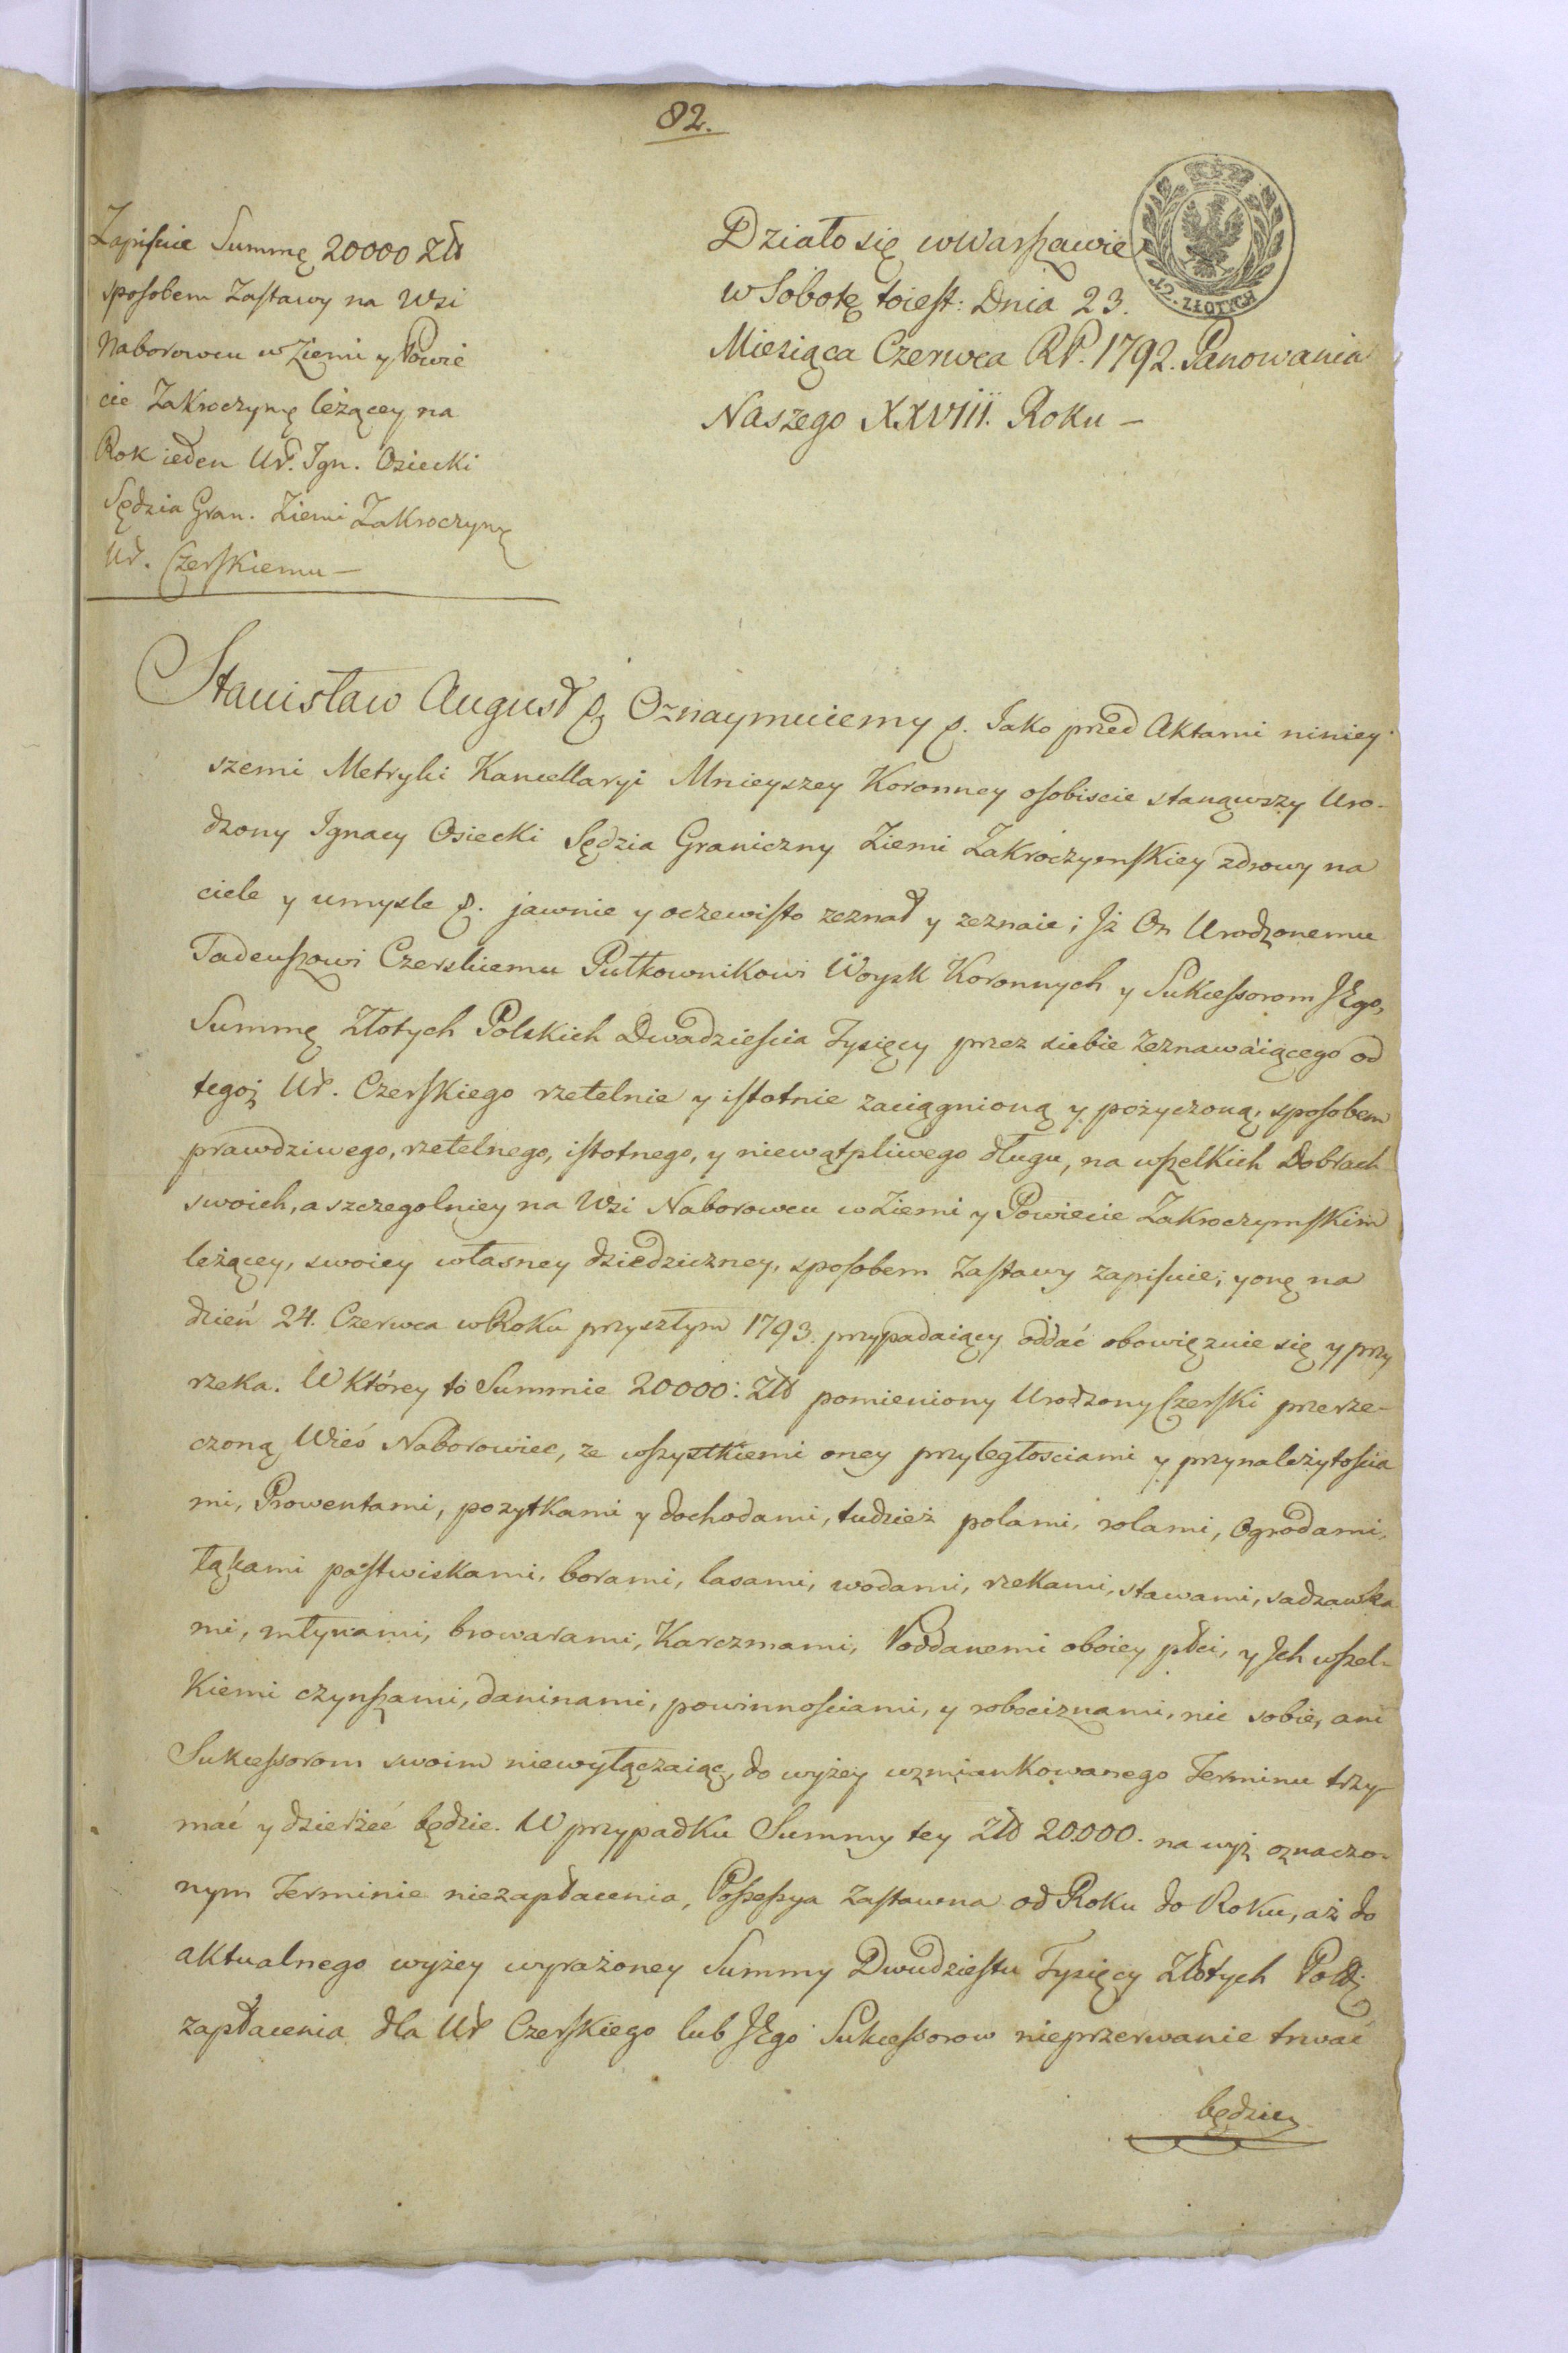 82.
Zapisuie Summę 20000 Złł
sposobem Zastawy na Wsi
Naborowcu w Ziemi y Powie
cie Zakroczymę leżącey na
Rok ieden Ur. Ign. Osiecki
Sędzia Gran. Ziemi Zakroczymę
Ur. Czerskiemu —
Działo się w Warszawie
w Sobotę toiest: Dnia 23.
Miesiąca Czerwca RP. 1792. Panowania
Naszego XXVIII. Roku —
12. ZŁOTYCH
Stanisław August & Oznaymuiemy &. Jako przed Aktami niniey
szemi Metryki Kancellaryi Mnieyszey Koronney osobiscie stanąwszy Uro-
dzony Ignacy Osiecki Sędzia Graniczny Ziemi Zakroczymskiey zdrowy na
ciele y umysle &. jawnie y oczewisto zeznał y zeznaie; Iż On Urodzonemu
Tadeuszowi Czerskiemu Pułkownikowi Woysk Koronnych y Sukcessorom JEgo,
Summę Złotych Polskich Dwadzieścia Tysięcy przez siebie Zeznawaiącego od
tegoż Ur. Czerskiego rzetelnie y istotnie zaciągnioną y pożyczoną, sposobem
prawdziwego, rzetelnego, istotnego, y niewątpliwego długu, na wszelkich Dobrach
swoich, a szczegolniey na Wsi Naborowcu w Ziemi y Powiecie Zakroczymskim
leżącey, swoiey własney dziedziczney, sposobem Zastawy zapisuie; y onę na
dzień 24. Czerwca w Roku przyszłym 1793. przypadaiący oddać obowięzuie się y przy
rzeka. W którey to Summie 20000: Złł pomieniony Urodzony Czerski przerze-
czoną Wieś Naborowiec, ze wszystkiemi oney przyległosciami y przynależytoscia
mi, Prowentami, pozytkami y dochodami, tudzież polami, rolami, Ogrodami,
łąkami pastwiskami, borami, lasami, wodami, rzekami, stawami, sadzawka
mi, młynami, browarami, Karczmami, Poddanemi oboiey płci, y Ich wszel-
kiemi czynszami, daninami, powinnościami, y robociznami, nic sobie, ani
Sukcessorom swoim niewyłączaiąc, do wyżey wzmiankowanego Terminu trzy
mać y dzierżeć będzie. W przypadku Summy tey Złł 20.000. na wyż oznaczo-
nym Terminie niezapłacenia, Possessya Zastawna od Roku do Roku, aż do
aktualnego wyżey wyrażoney Summy Dwudziestu Tysięcy Złotych Pol:
zapłacenia dla Ur Czerskiego lub JEgo Sukcessorow nieprzerwanie trwać
będzie